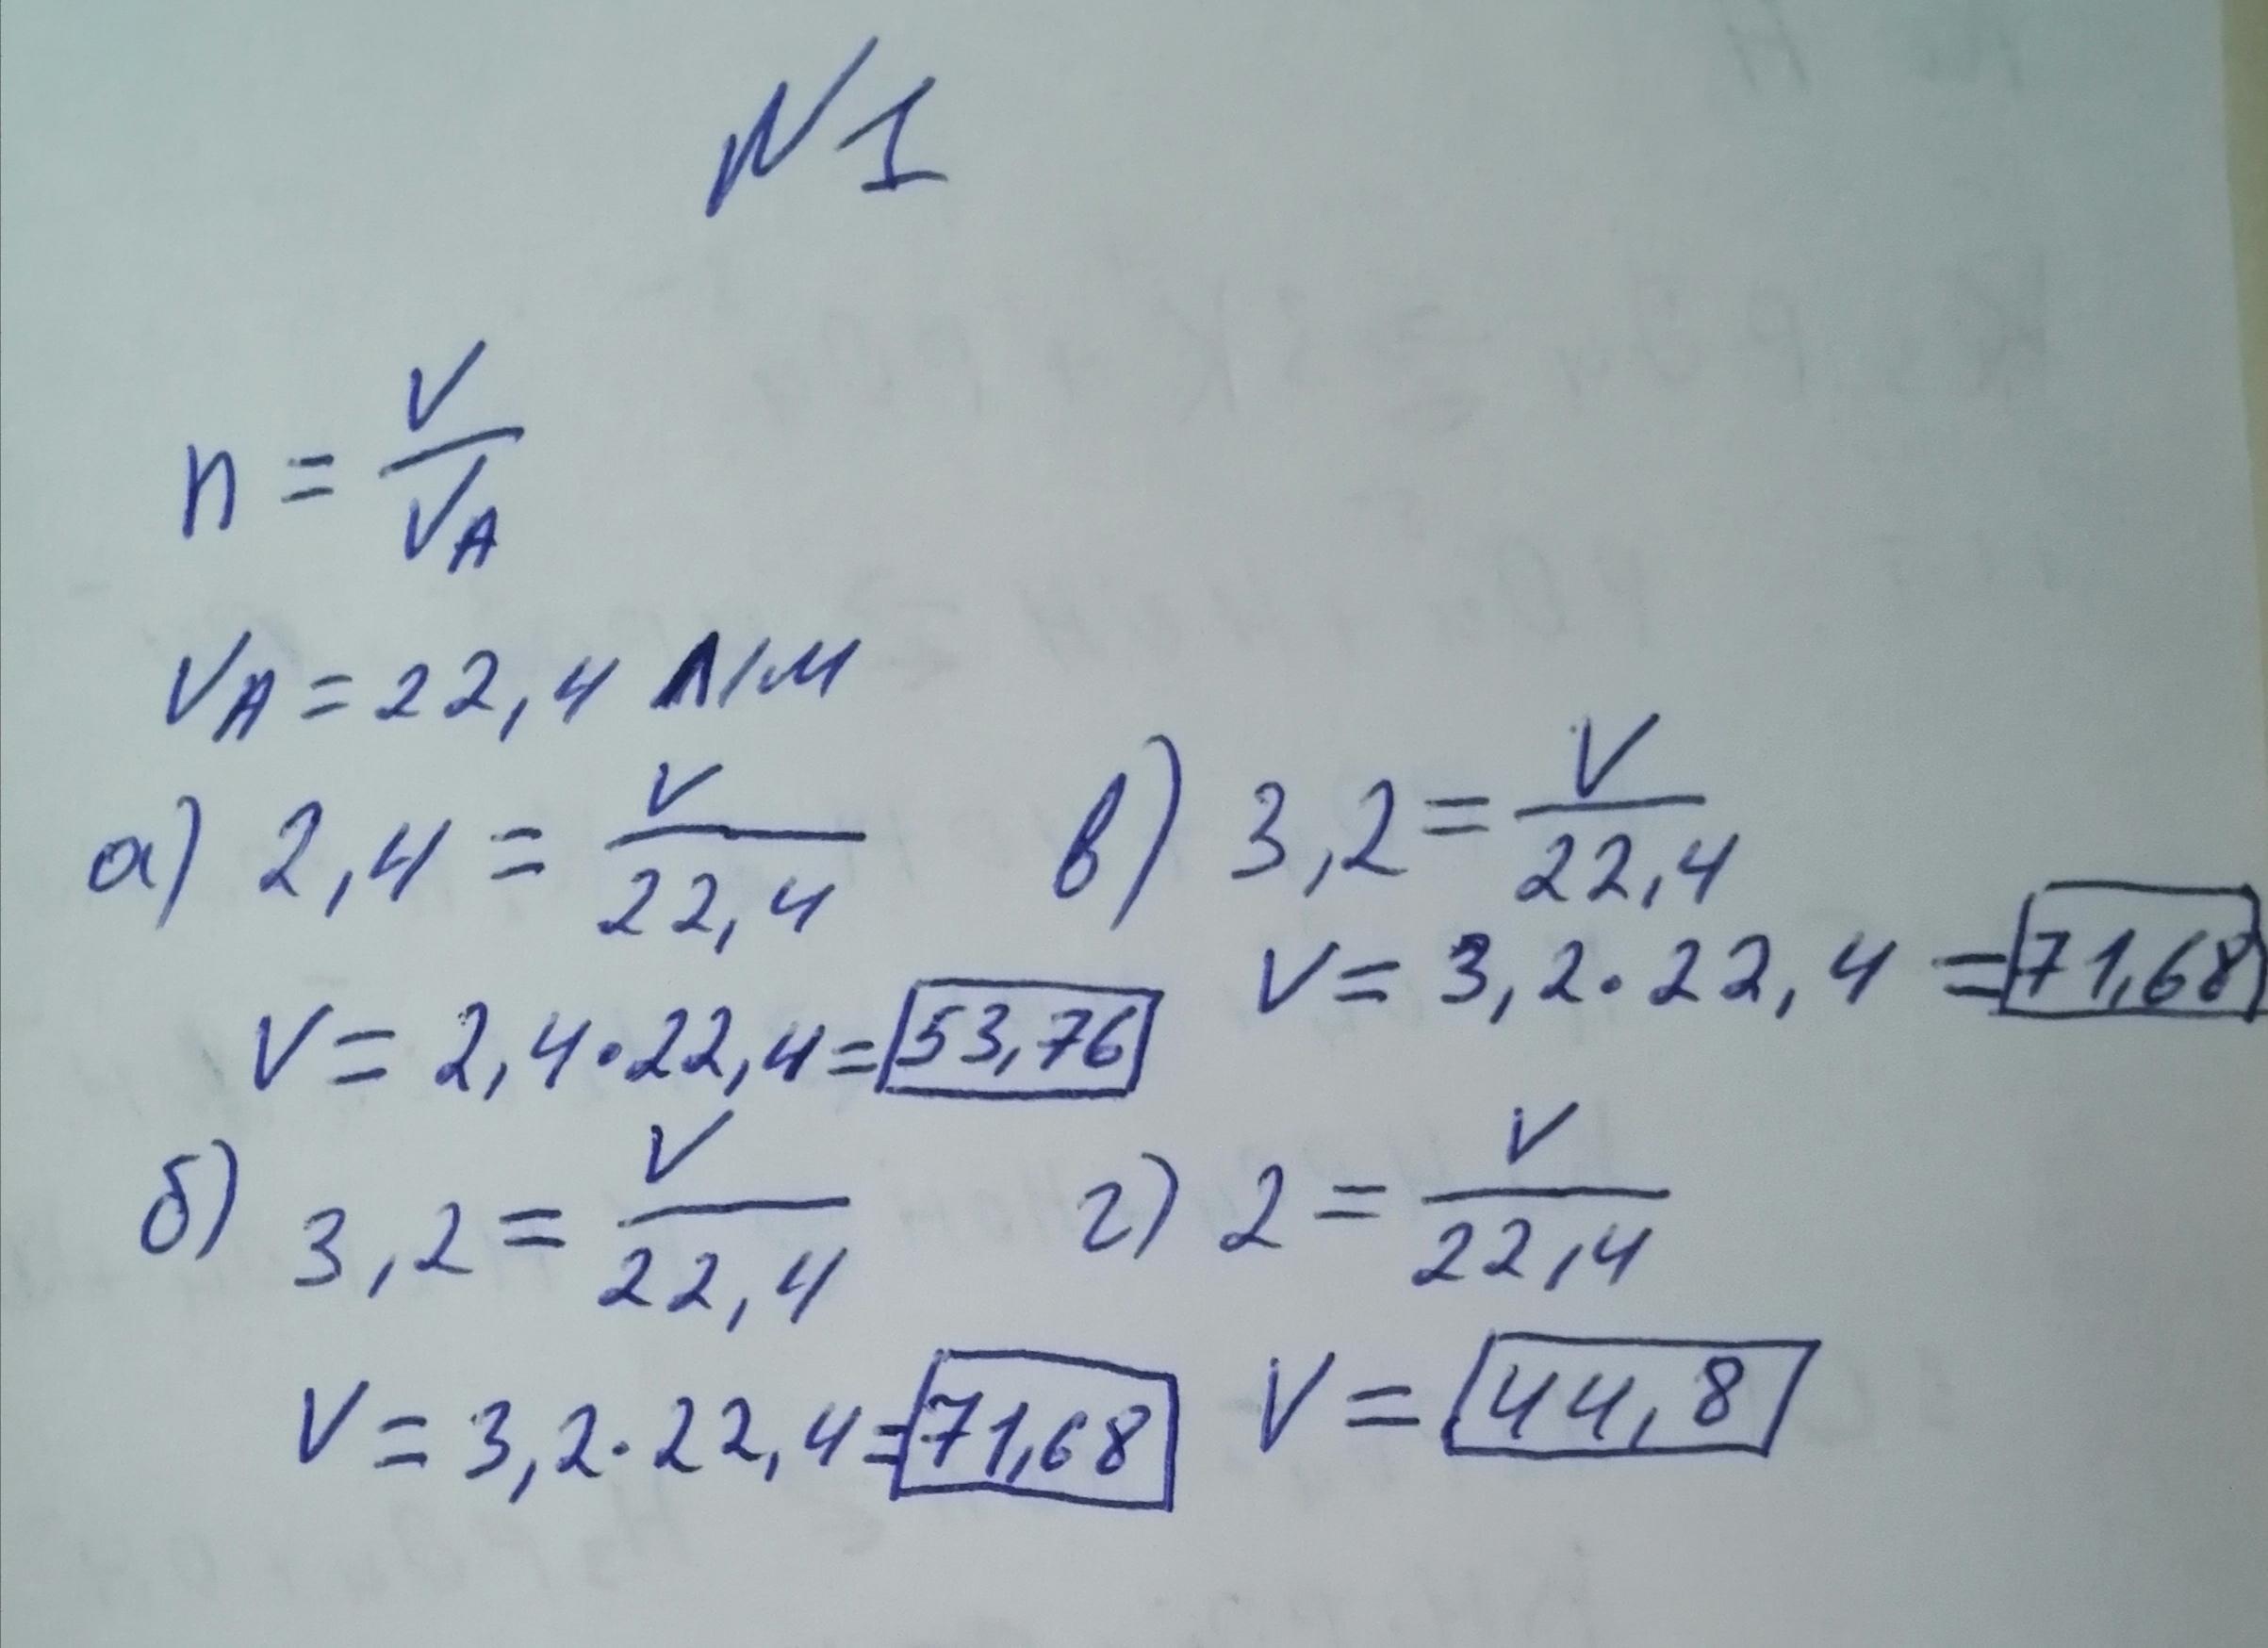 N1
n = V/V_A
V_A = 22,4 л/м
а) 2,4 = V/22,4
V = 2,4·22,4 = 53,76
б) 3,2 = V/22,4
V = 3,2·22,4 = 71,68
в) 3,2 = V/22,4
V = 3,2·22,4 = 71,68
г) 2 = V/22,4
V = 44,8